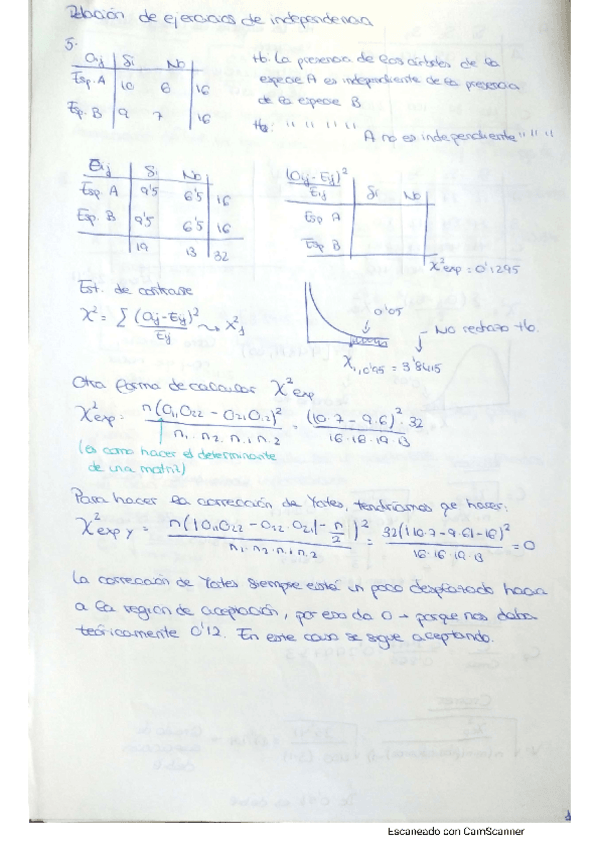 Relación de ejercicios de independencia
5.
Oij Si No
Esp. A 10 6 16
Esp. B 9 7 16
Ho: La presencia de los árboles de la
especie A es independiente de la presencia
de la especie B
H1: " " " " "
A no es independiente " " "
Eij Si No
Esp A 9'5 6'5 16
Esp. B 9'5 6'5 16
19 13 32
(Oij - Eij)²
Eij Si No
Esp A
Esp. B
X²exp = 0'1295
Est. de contraste
X² = Σ (Oij - Eij)² / Eij ~> X²1
0'05
X1,0'95 = 3'8415
→ No rechazo Ho.
Otra forma de calcular X²exp
X²exp = n(O11O22 - O21O12)² / n1. n2. n.1 n.2 = (10·7 - 9·6)²·32 / 16·16·19·13
(es como hacer el determinante
de una matriz)
Para hacer la corrección de Yates, tendríamos qe hacer:
X²exp y = n(|O11O22 - O12·O21| - n/2)² / n1. n2. n.1 n.2 = 32(|10·7 - 9·6| - 16)² / 16·16·19·13 = 0
La corrección de Yates siempre está un poco desplazado hacia
a la región de aceptación, por eso da 0 → porque nos daba
teóricamente 0'12. En este caso se sigue aceptando.
Escaneado con CamScanner